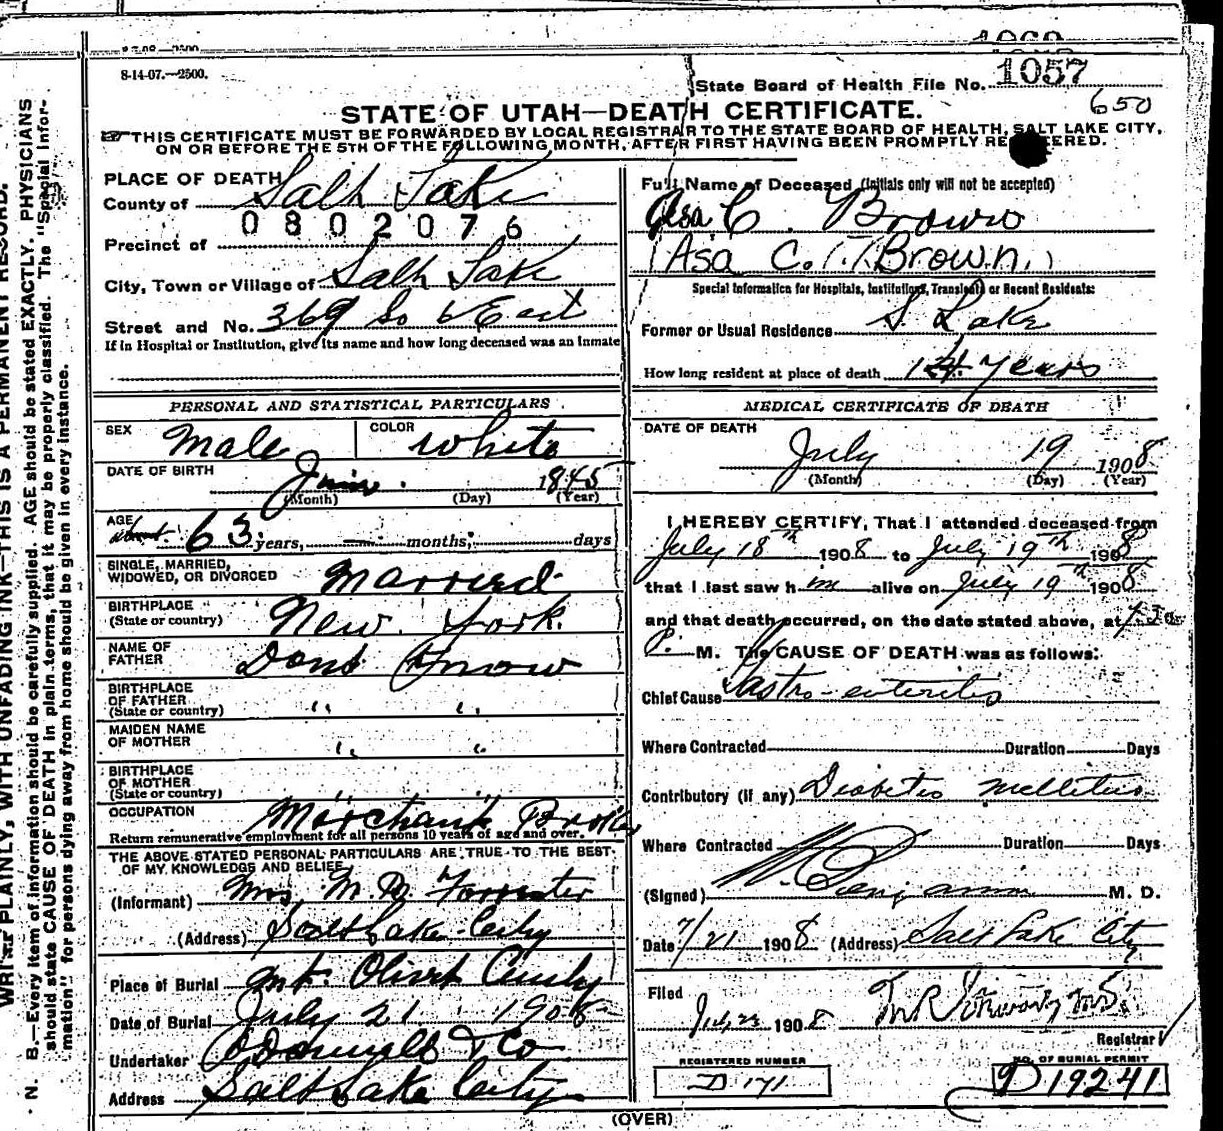 8-14-07.—2500.
State Board of Health File No. 1057
650
STATE OF UTAH—DEATH CERTIFICATE.
THIS CERTIFICATE MUST BE FORWARDED BY LOCAL REGISTRAR TO THE STATE BOARD OF HEALTH, SALT LAKE CITY,
ON OR BEFORE THE 5TH OF THE FOLLOWING MONTH, AFTER FIRST HAVING BEEN PROMPTLY RE ERED.
PLACE OF DEATH
County of Salt Lake
0802076
Precinct of
City, Town or Village of Salt Lake
Street and No. 369 So 6 East
If in Hospital or Institution, give its name and how long deceased was an inmate
Full Name of Deceased (Initials only will not be accepted)
Asa C. Brown
(Asa C. Brown)
Special Information for Hospitals, Institutions, Transients or Recent Residents:
Former or Usual Residence S. Lake
How long resident at place of death years
PERSONAL AND STATISTICAL PARTICULARS
SEX Male COLOR White
DATE OF BIRTH 1845
(Month) (Day) (Year)
AGE about 63 years, — months, days
SINGLE, MARRIED,
WIDOWED, OR DIVORCED Married
BIRTHPLACE
(State or country) New York
NAME OF
FATHER Dont Know
BIRTHPLACE
OF FATHER
(State or country) " "
MAIDEN NAME
OF MOTHER " "
BIRTHPLACE
OF MOTHER
(State or country) " "
OCCUPATION Merchant Broker
Return remunerative employment for all persons 10 years of age and over.
THE ABOVE STATED PERSONAL PARTICULARS ARE TRUE TO THE BEST
OF MY KNOWLEDGE AND BELIEF
(Informant) Mrs M. M. Forrester
(Address) Salt Lake City
Place of Burial Mt. Olivet Cemty
Date of Burial July 21 1908
Undertaker O'Donnell & Co
Address Salt Lake City
MEDICAL CERTIFICATE OF DEATH
DATE OF DEATH
July 19 1908
(Month) (Day) (Year)
I HEREBY CERTIFY, That I attended deceased from
July 18th 1908 to July 19th 1908
that I last saw him alive on July 19th 1908
and that death occurred, on the date stated above, at
P. M. The CAUSE OF DEATH was as follows:
Chief Cause Gastro-enteritis
Where Contracted Duration Days
Contributory (if any) Diabetes Mellitus
Where Contracted Duration Days
(Signed) Benjamin M. D.
Date 7/21 1908 (Address) Salt Lake City
Filed
July 1908
Registrar
REGISTERED NUMBER
D 171
NO. OF BURIAL PERMIT
D19241
(OVER)
N. B.—Every item of information should be carefully supplied. AGE should be stated EXACTLY. PHYSICIANS
should state CAUSE OF DEATH in plain terms, that it may be properly classified. The "Special Infor-
mation" for persons dying away from home should be given in every instance.
WRITE PLAINLY, WITH UNFADING INK—THIS IS A PERMANENT RECORD.